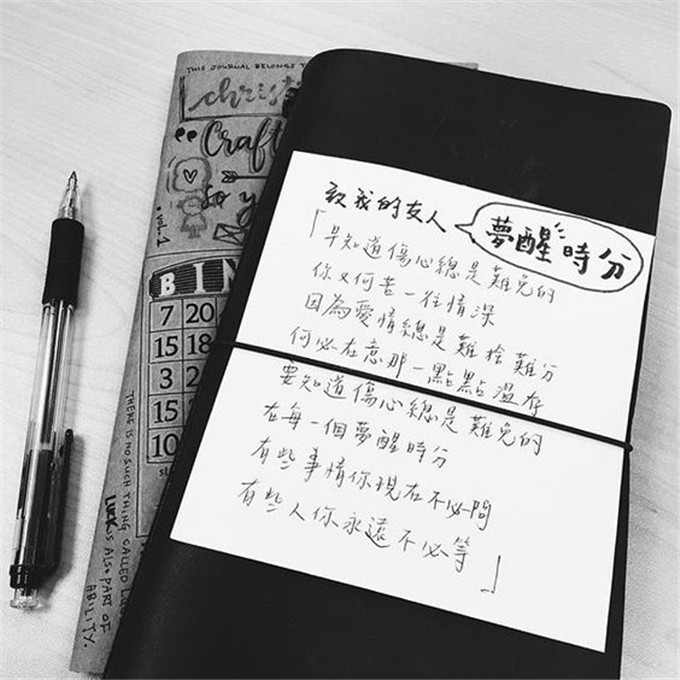 THIS JOURNAL BELONGS T
christ
"Craft
so y
vol.1
BIN
7 20
15 18
3 2
15
10
THERE IS NO SUCH THING CALLED LUC
LUCK IS ALSO PART OF
ABILITY.
致我的友人
夢醒時分
「早知道傷心總是難免的
你又何苦一往情深
因為愛情總是難捨難分
何必在意那一點點溫存
要知道傷心總是難免的
在每一個夢醒時分
有些事情你現在不必問
有些人你永遠不必等」